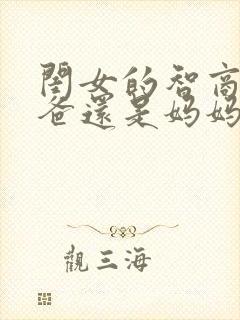 閨女的智商
爸還是媽媽
觀三海